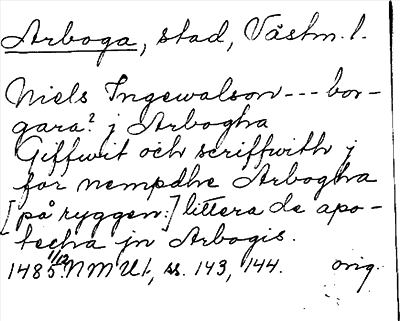 Arboga, stad, Västm. l.
Niels Ingewalson --- bor-
gara? j Arbogha
Giffwit och scriffwith j
for nempdhe Arbogha
[på ryggen:] littera de apo-
techa jn Arbogis.
1485 1/12 NMU1, ss. 143, 144. orig.